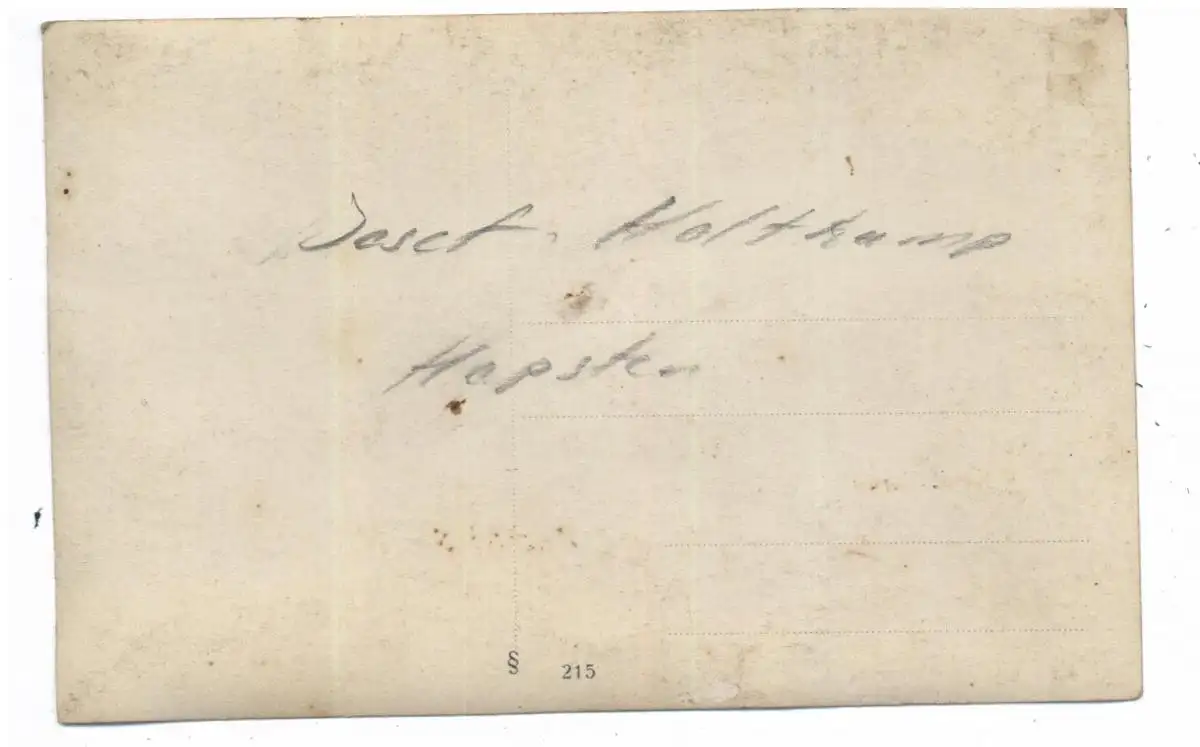 Josef Holtkamp
Hopsten
§ 215